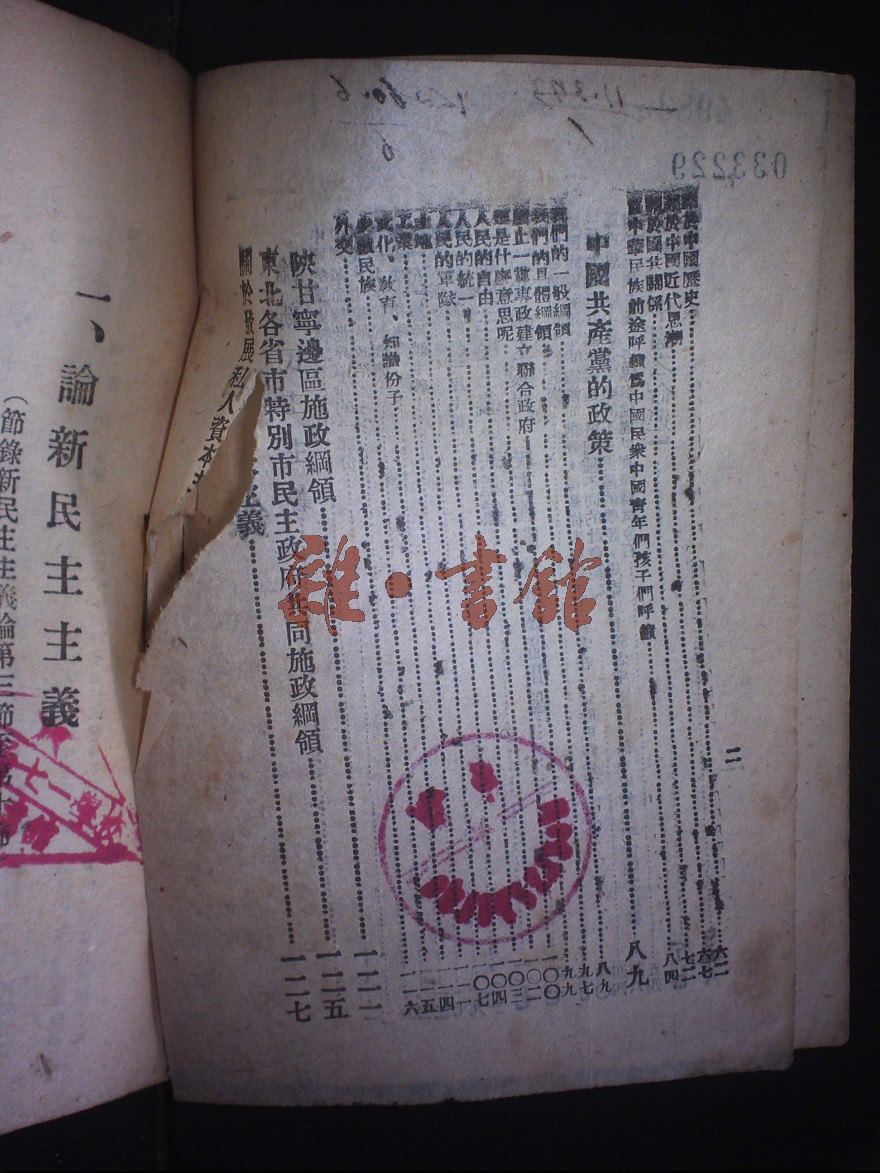 二
關於中國歷史……六二
關於中國近代思潮……六七
關於國共關係……七二
為中華民族前途呼籲為中國民衆中國青年們孩子們呼籲……八四
中國共產黨的政策……八九
我們的一般綱領……八九
我們的具體綱領……九七
廢止一黨專政建立聯合政府……九九
這是什麽意思呢……一〇〇
人民的自由……一〇二
人民的統一……一〇三
人民的軍隊……一〇四
土地……一〇七
工業……一一一
文化、敎育、知識份子……一一四
少數民族……一一五
外交……一一六
陝甘寧邊區施政綱領……一二一
東北各省市特別市民主政府共同施政綱領……一二五
關於發展私人資本主義……一二七
033229
一、論新民主主義
（節錄新民主主義論第三節至第十
雜·書館